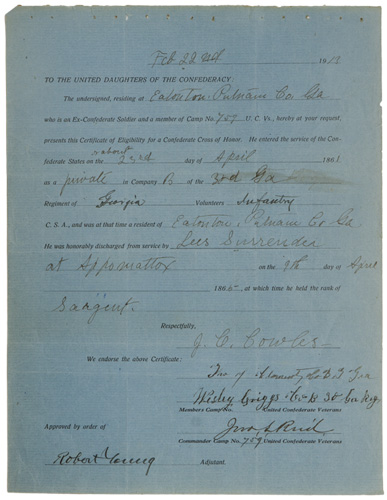 Feb 22nd 191
TO THE UNITED DAUGHTERS OF THE CONFEDERACY:
The undersigned, residing at Eatonton Putnam Co. Ga
who is an Ex-Confederate Soldier and a member of Camp No. 759 U. C. Vs., hereby at your request,
presents this Certificate of Eligibility for a Confederate Cross of Honor. He entered the service of the Con-
federate States on about 23rd day of April 1861
as a private in Company B of the 3rd Ga
Regiment of Georgia Volunteers Infantry
C. S. A., and was at that time a resident of Eatonton, Putnam Co Ga.
He was honorably discharged from service by Lees Surrender
at Appomattox on the 9th day of April
1865, at which time he held the rank of
Sargent.
Respectfully,
J. C. Cowles
We endorse the above Certificate:
of Co B 3 Ga
Wesley Griggs Co B 3d Ga Reg
Members Camp No. United Confederate Veterans
Approved by order of Jno. S. Reid
Commander Camp No. 759 United Confederate Veterans
Robert Young Adjutant.